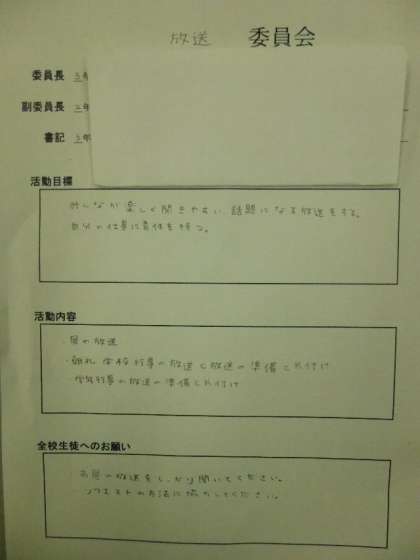 放送 委員会
委員長 3年
副委員長 二年
書記 3年
活動目標
みんなが楽しく聞きやすい、話題になる放送をする。
自分の仕事に責任を持つ。
活動内容
・昼の放送
・朝礼、学校行事の放送と放送の準備と片付け
・学年行事の放送の準備と片付け
全校生徒へのお願い
・お昼の放送をしっかり聞いてください。
・リクエストの方法に協力してください。